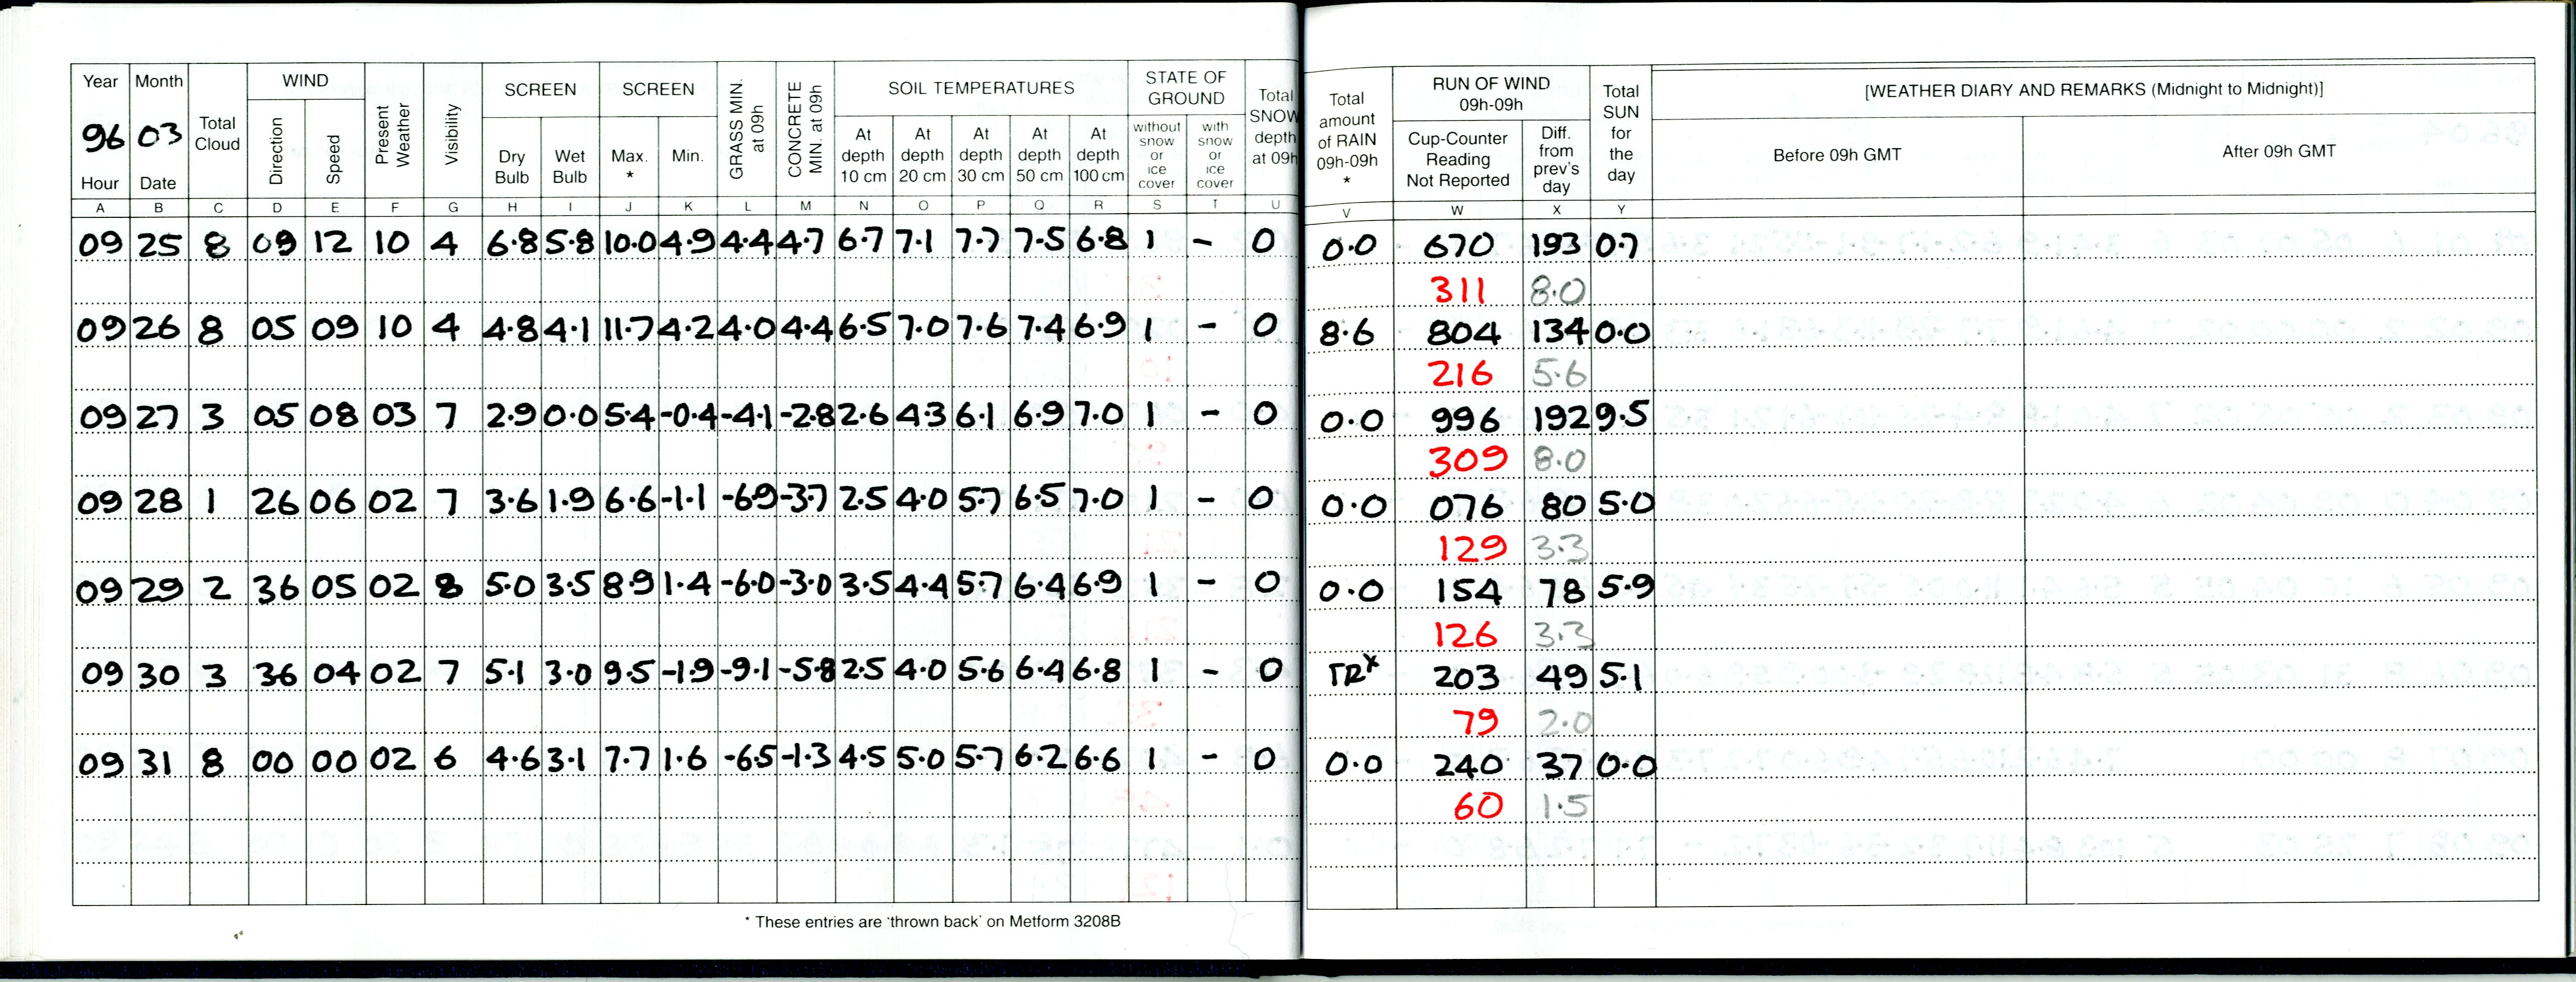 Year Month Total Cloud WIND Present Weather Visibility SCREEN SCREEN GRASS MIN. at 09h CONCRETE MIN. at 09h SOIL TEMPERATURES STATE OF GROUND Total SNOW depth at 09h Total amount of RAIN 09h-09h * RUN OF WIND 09h-09h Total SUN for the day [WEATHER DIARY AND REMARKS (Midnight to Midnight)]
96 03 Direction Speed Dry Bulb Wet Bulb Max. * Min. At depth 10 cm At depth 20 cm At depth 30 cm At depth 50 cm At depth 100 cm without snow or ice cover with snow or ice cover Cup-Counter Reading Not Reported Diff. from prev's day Before 09h GMT After 09h GMT
Hour Date
A B C D E F G H I J K L M N O P Q R S T U V W X Y
09 25 8 09 12 10 4 6.8 5.8 10.0 4.9 4.4 4.7 6.7 7.1 7.7 7.5 6.8 1 - 0 0.0 670 193 0.7
311 8.0
09 26 8 05 09 10 4 4.8 4.1 11.7 4.2 4.0 4.4 6.5 7.0 7.6 7.4 6.9 1 - 0 8.6 804 134 0.0
216 5.6
09 27 3 05 08 03 7 2.9 0.0 5.4 -0.4 -4.1 -2.8 2.6 4.3 6.1 6.9 7.0 1 - 0 0.0 996 192 9.5
309 8.0
09 28 1 26 06 02 7 3.6 1.9 6.6 -1.1 -6.9 -3.7 2.5 4.0 5.7 6.5 7.0 1 - 0 0.0 076 80 5.0
129 3.3
09 29 2 36 05 02 8 5.0 3.5 8.9 1.4 -6.0 -3.0 3.5 4.4 5.7 6.4 6.9 1 - 0 0.0 154 78 5.9
126 3.3
09 30 3 36 04 02 7 5.1 3.0 9.5 -1.9 -9.1 -5.8 2.5 4.0 5.6 6.4 6.8 1 - 0 TRx 203 49 5.1
79 2.0
09 31 8 00 00 02 6 4.6 3.1 7.7 1.6 -6.5 -1.3 4.5 5.0 5.7 6.2 6.6 1 - 0 0.0 240 37 0.0
60 1.5
* These entries are 'thrown back' on Metform 3208B